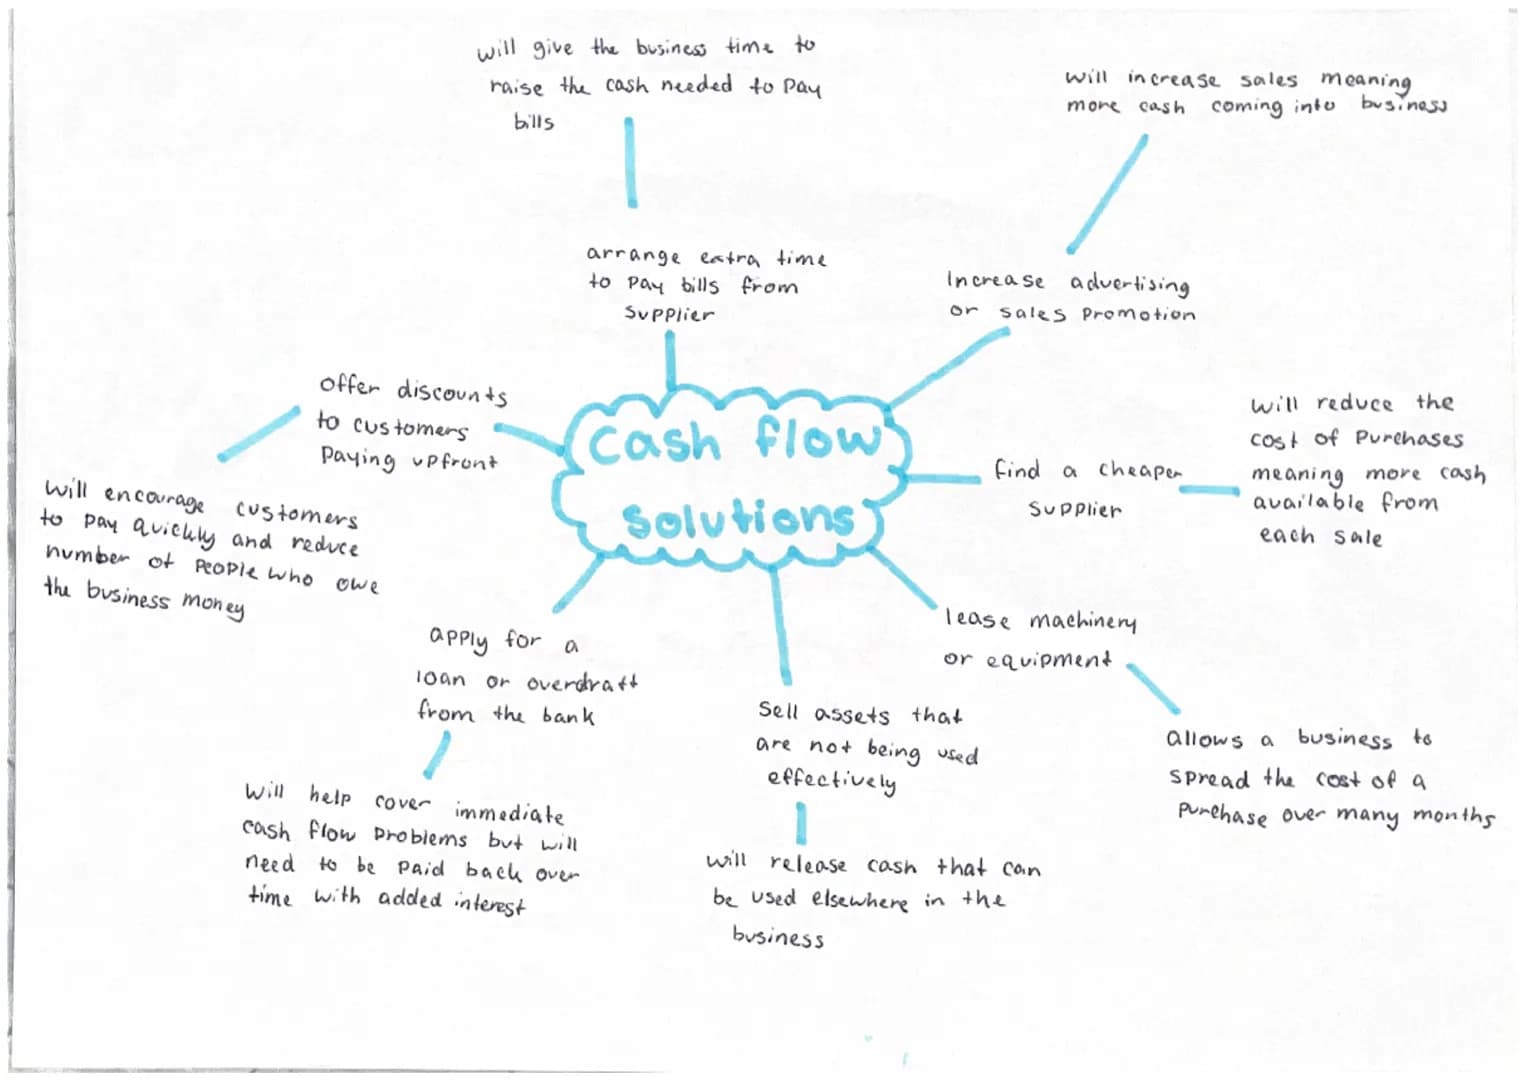 will give the business time to
raise the cash needed to pay
bills
will increase sales meaning
more cash coming into business
arrange extra time
to pay bills from
supplier
Increase advertising
or sales promotion
offer discounts
to customers
paying upfront
cash flow
solutions
find a cheaper
supplier
will reduce the
cost of purchases
meaning more cash
available from
each sale
will encourage customers
to pay quickly and reduce
number of people who owe
the business money
apply for a
loan or overdraft
from the bank
lease machinery
or equipment
Sell assets that
are not being used
effectively
allows a business to
spread the cost of a
purchase over many months
will help cover immediate
cash flow problems but will
need to be paid back over
time with added interest
will release cash that can
be used elsewhere in the
business